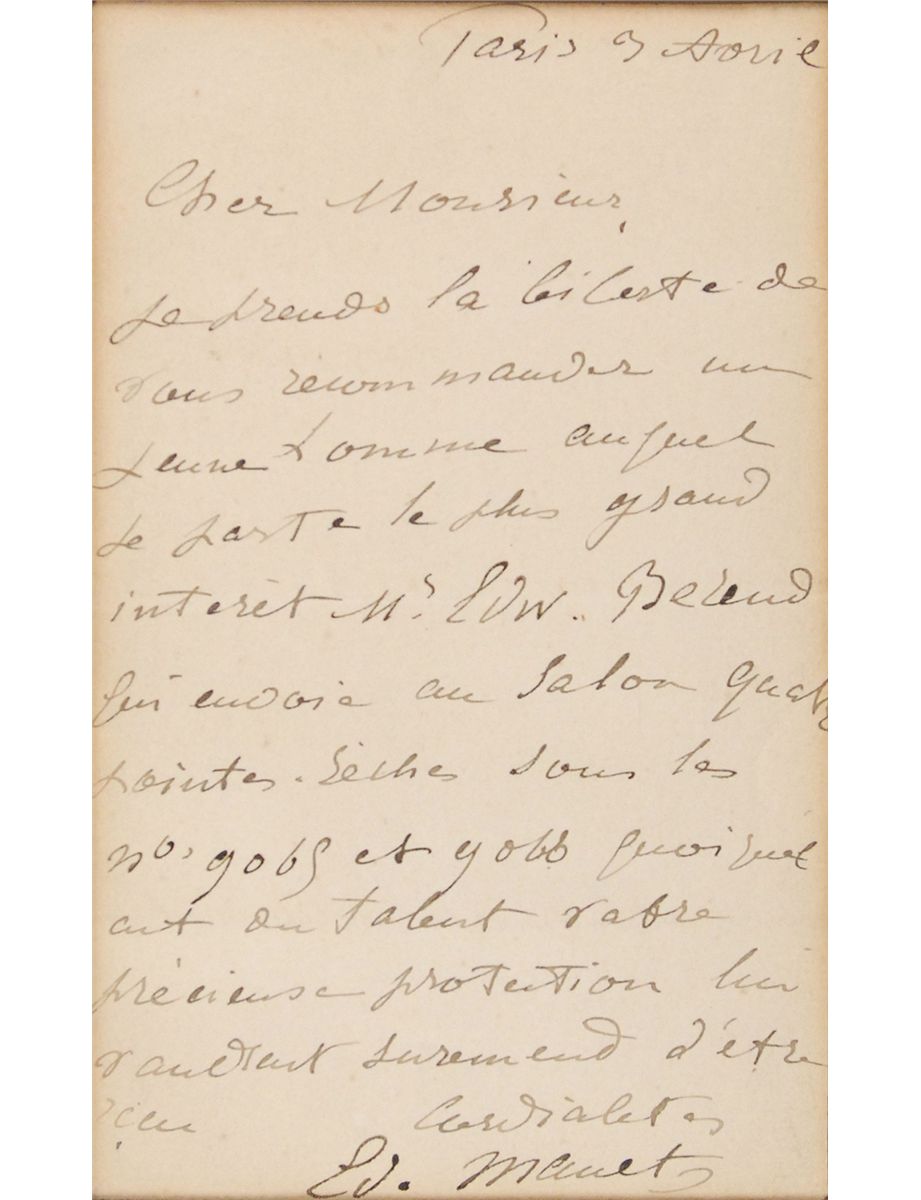 Paris 3 Avril
Cher Monsieur,
je prends la liberté de
vous recommander un
jeune homme auquel
je porte le plus grand
intérêt Mr. Edw. Berend
qui envoie au Salon quatre
pointes-sèches sous les
nos 9065 et 9066 quoiqu'il
ait du talent votre
précieuse protection lui
vaudrait surement d'être
Cordialités
Ed. Manet